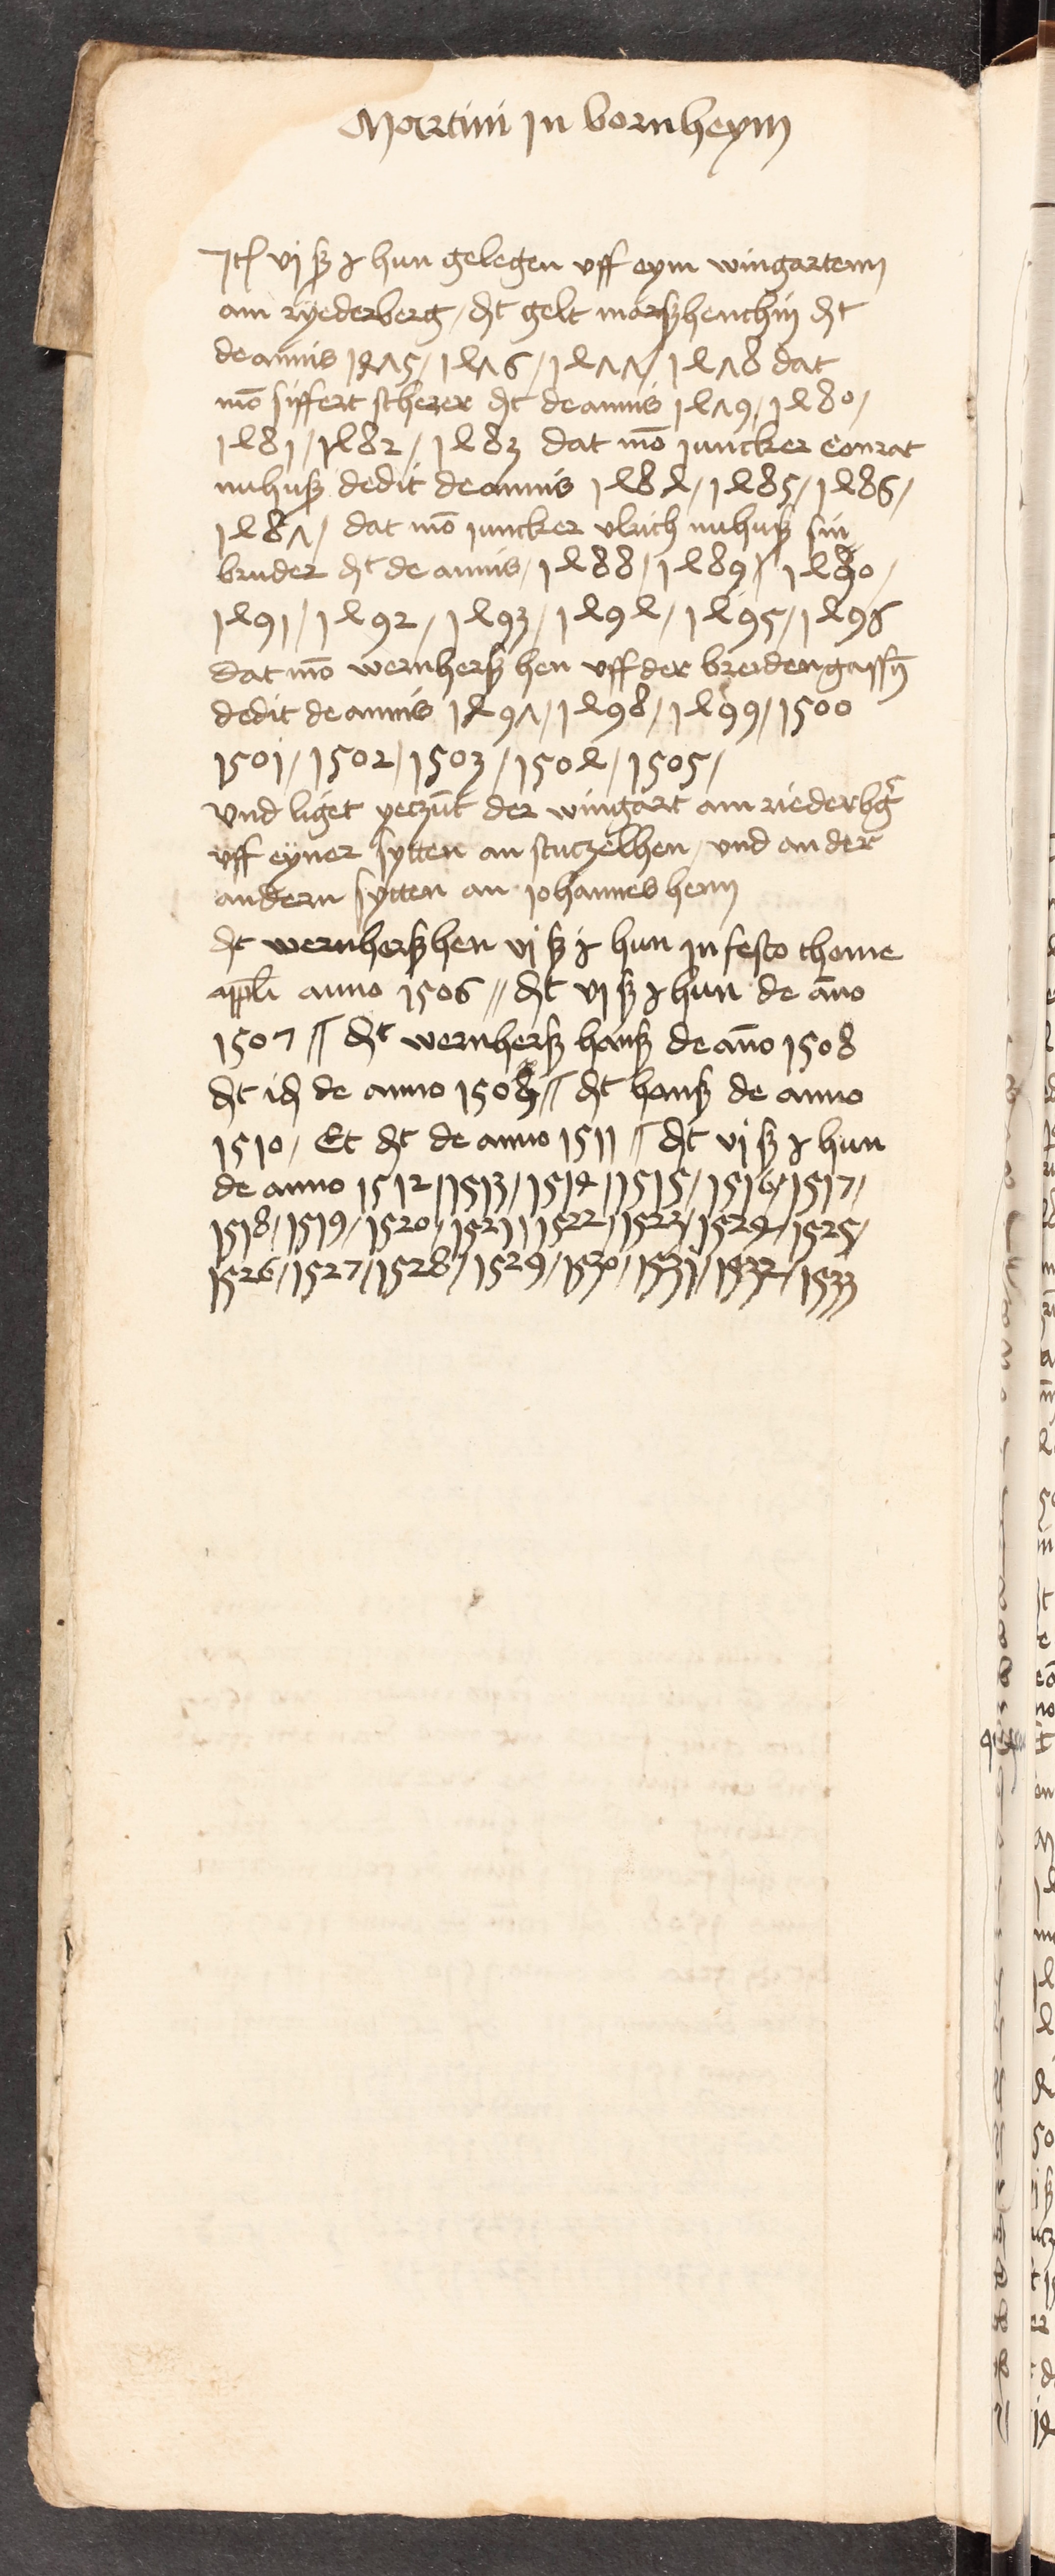 Martini in bornheym
Jt vj ß j hun gelegen vff eym wingartenn
am ryederberg / dt gelt marßhenchin dt
de annis 1475 / 1476 / 1477 / 1478 dat
mō siffert scherer dt de annis 1479 / 1480 /
1481 / 1482 / 1483 dat mō juncker Conrat
nuhuß dedit de annis 1484 / 1485 / 1486 /
1487 / dat mō juncker vlrich nuhuß sin
bruder dt de annis / 1488 / 1489 / 1490 /
1491 / 1492 / 1493 / 1494 / 1495 / 1496
dat mō wernherß hen vff der breidengassn̄
dedit de annis 1497 / 1498 / 1499 / 1500
1501 / 1502 / 1503 / 1504 / 1505 /
Vnd liget yeczūt der wingart am riederbg
vff eyner sytten an stuczelhen / vnd an der
andern sytten an johannes henn
dt wernherßhen vj ß j hun in festo thome
appli anno 1506 // dt vj ß j hun de āno
1507 // dt wernherß hanß de āno 1508
dt id de anno 1509 // dt hanß de anno
1510 / Et dt de anno 1511 // dt vj ß j hun
de anno 1512 / 1513 / 1514 / 1515 / 1516 / 1517 /
1518 / 1519 / 1520 / 1521 / 1522 / 1523 / 1524 / 1525 /
1526 / 1527 / 1528 / 1529 / 1530 / 1531 / 1532 / 1533